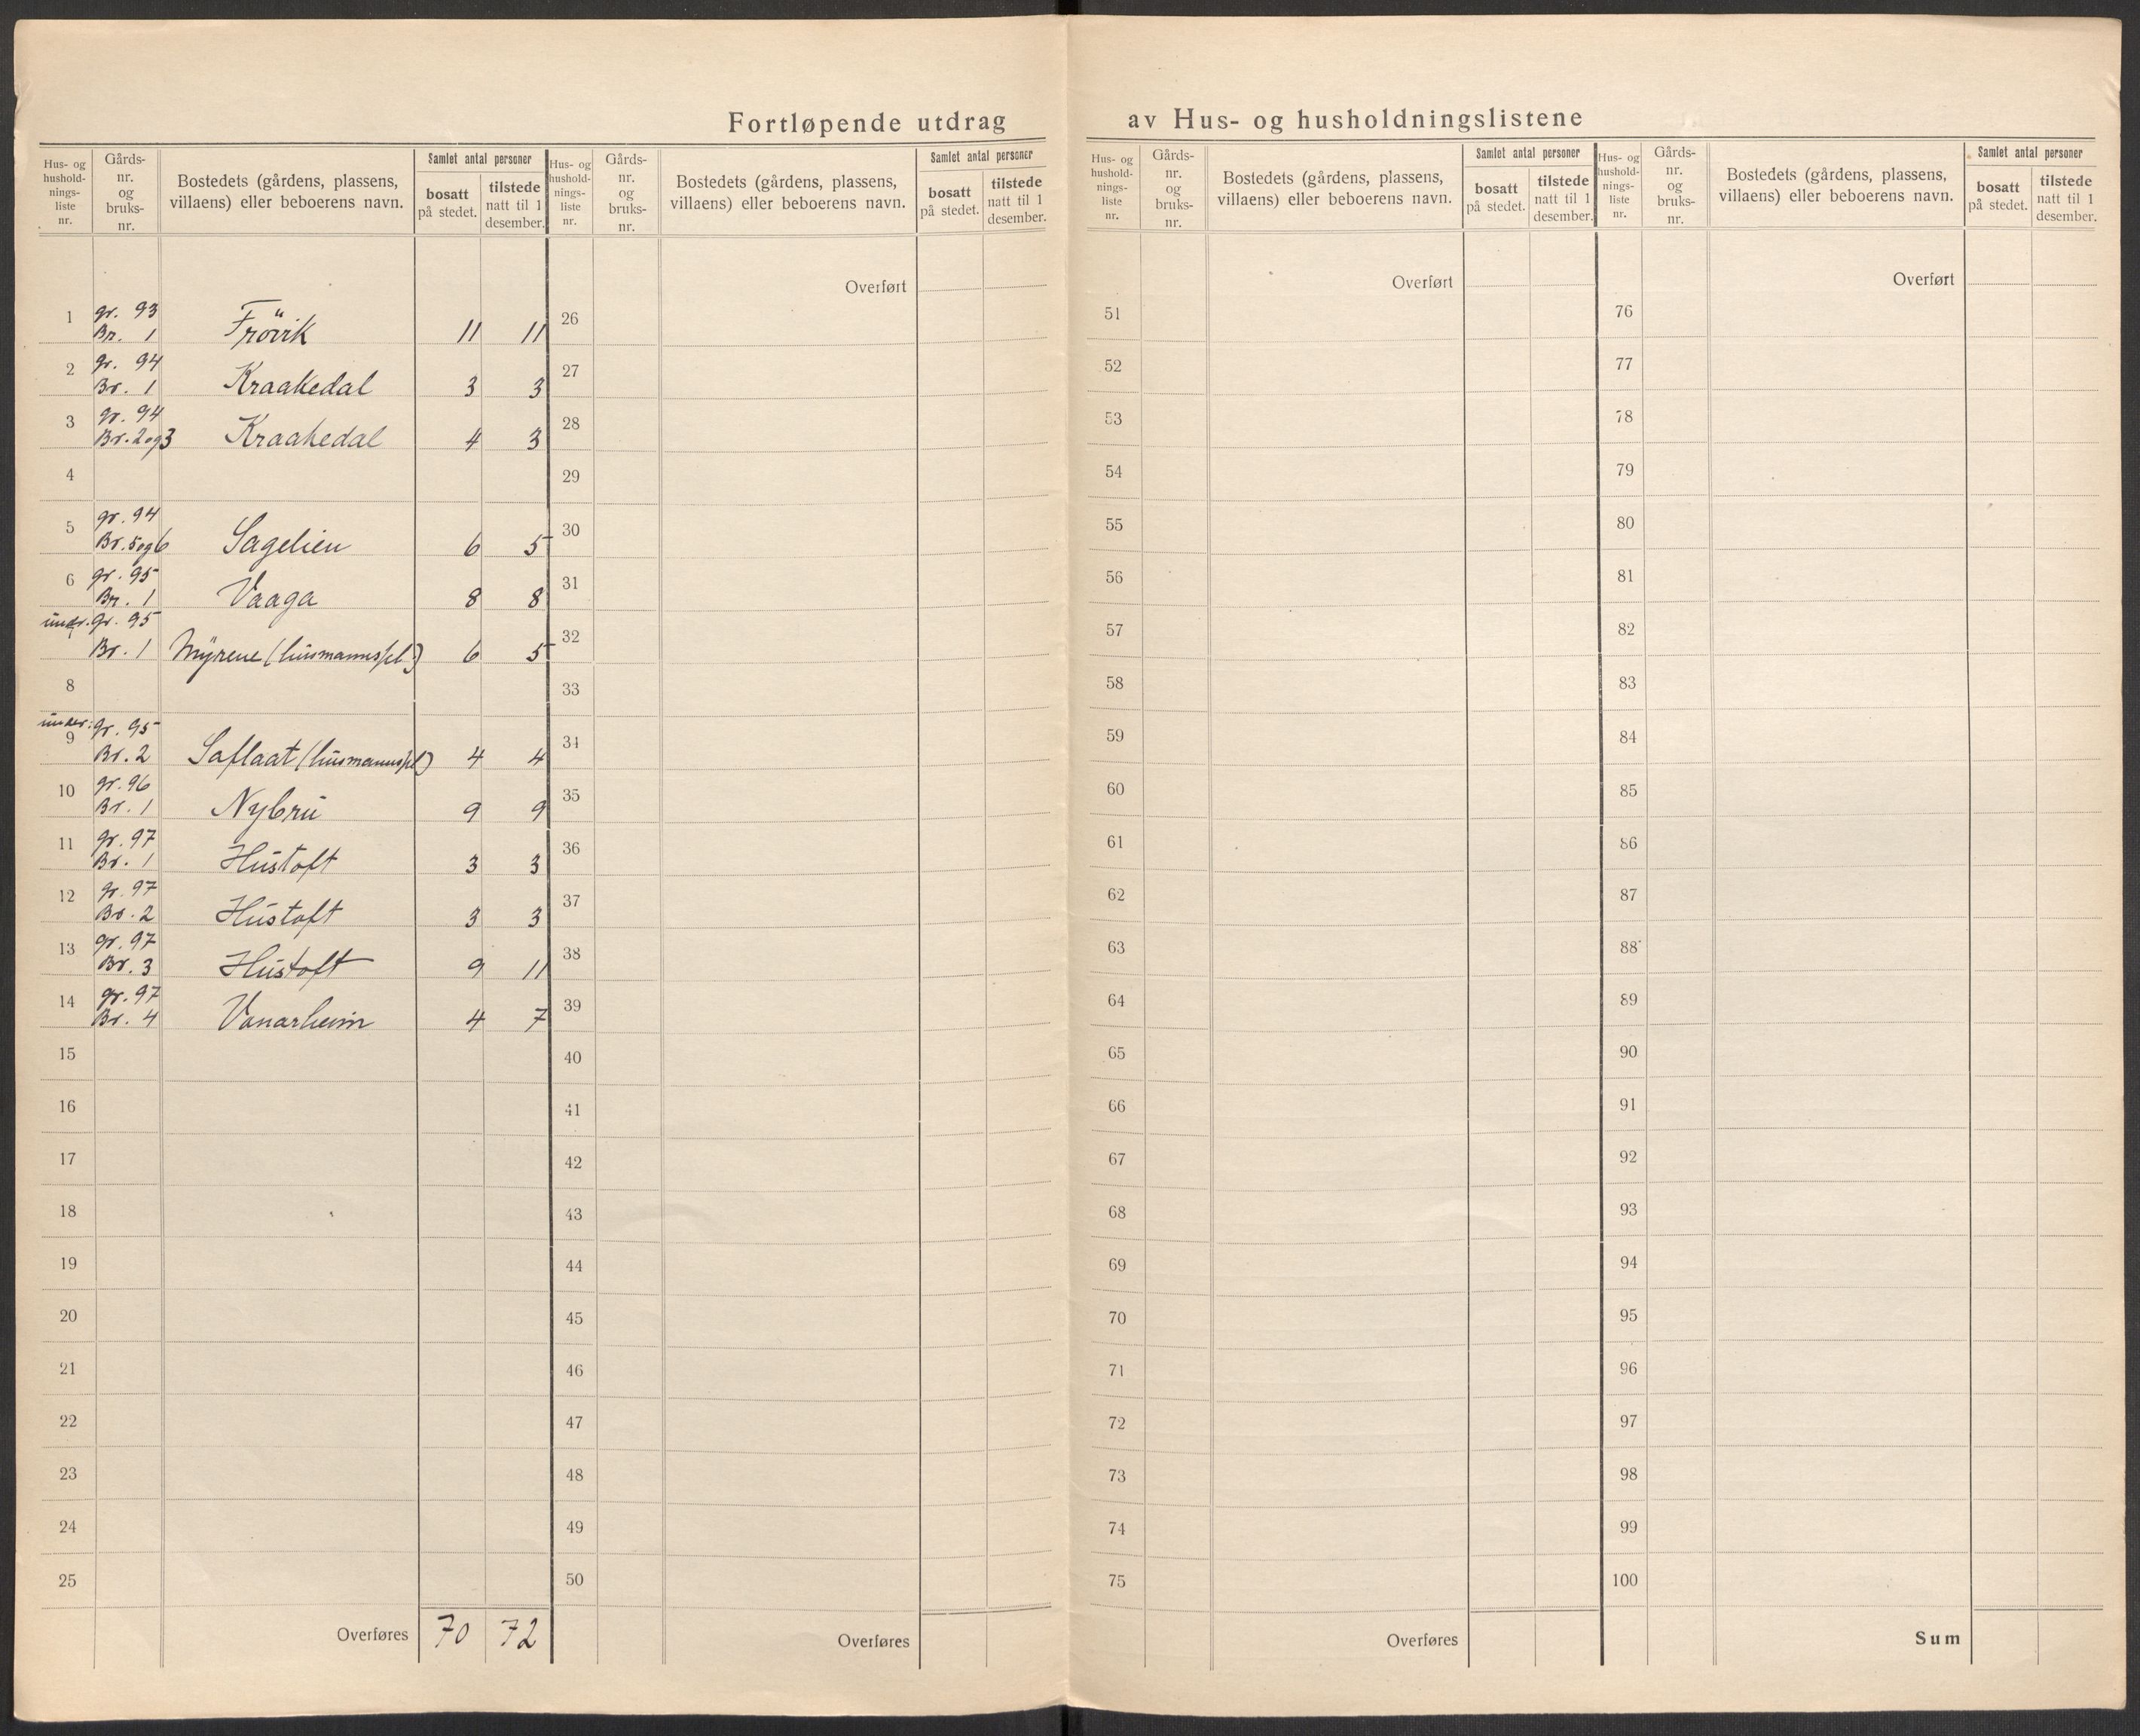 Fortløpende utdrag av Hus- og husholdningslistene
Hus- og hushold- nings- liste nr. Gårds- nr. og bruks- nr. Bostedets (gårdens, plassens, villaens) eller beboerens navn. Samlet antal personer bosatt på stedet. tilstede natt til 1 desember.
Hus- og hushold- nings- liste nr. Gårds- nr. og bruks- nr. Bostedets (gårdens, plassens, villaens) eller beboerens navn. Samlet antal personer bosatt på stedet. tilstede natt til 1 desember.
Hus- og hushold- nings- liste nr. Gårds- nr. og bruks- nr. Bostedets (gårdens, plassens, villaens) eller beboerens navn. Samlet antal personer bosatt på stedet. tilstede natt til 1 desember.
Hus- og hushold- nings- liste nr. Gårds- nr. og bruks- nr. Bostedets (gårdens, plassens, villaens) eller beboerens navn. Samlet antal personer bosatt på stedet. tilstede natt til 1 desember.
1 gr. 93 Br. 1 Frövik 11 11
2 gr. 94 Br. 1 Kraakedal 3 3
3 gr. 94 Br. 2 og 3 Kraakedal 4 3
4
5 gr. 94 Br. 5 og 6 Sagelien 6 5
6 gr. 95 Br. 1 Vaaga 8 8
gr. 95 Br. 1 Myrene (husmannspl.) 6 5
8
under: 9 gr. 95 Br. 2 Saflaat (husmannspl) 4 4
10 gr. 96 Br. 1 Nybru 9 9
11 gr. 97 Br. 1 Hustoft 3 3
12 gr. 97 Br. 2 Hustoft 3 3
13 gr. 97 Br. 3 Hustoft 9 11
14 gr. 97 Br. 4 Vonarheim 4 7
15
16
17
18
19
20
21
22
23
24
25
Overføres 70 72
Overført
26
27
28
29
30
31
32
33
34
35
36
37
38
39
40
41
42
43
44
45
46
47
48
49
50
Overføres
Overført
51
52
53
54
55
56
57
58
59
60
61
62
63
64
65
66
67
68
69
70
71
72
73
74
75
Overføres
Overført
76
77
78
79
80
81
82
83
84
85
86
87
88
89
90
91
92
93
94
95
96
97
98
99
100
Sum